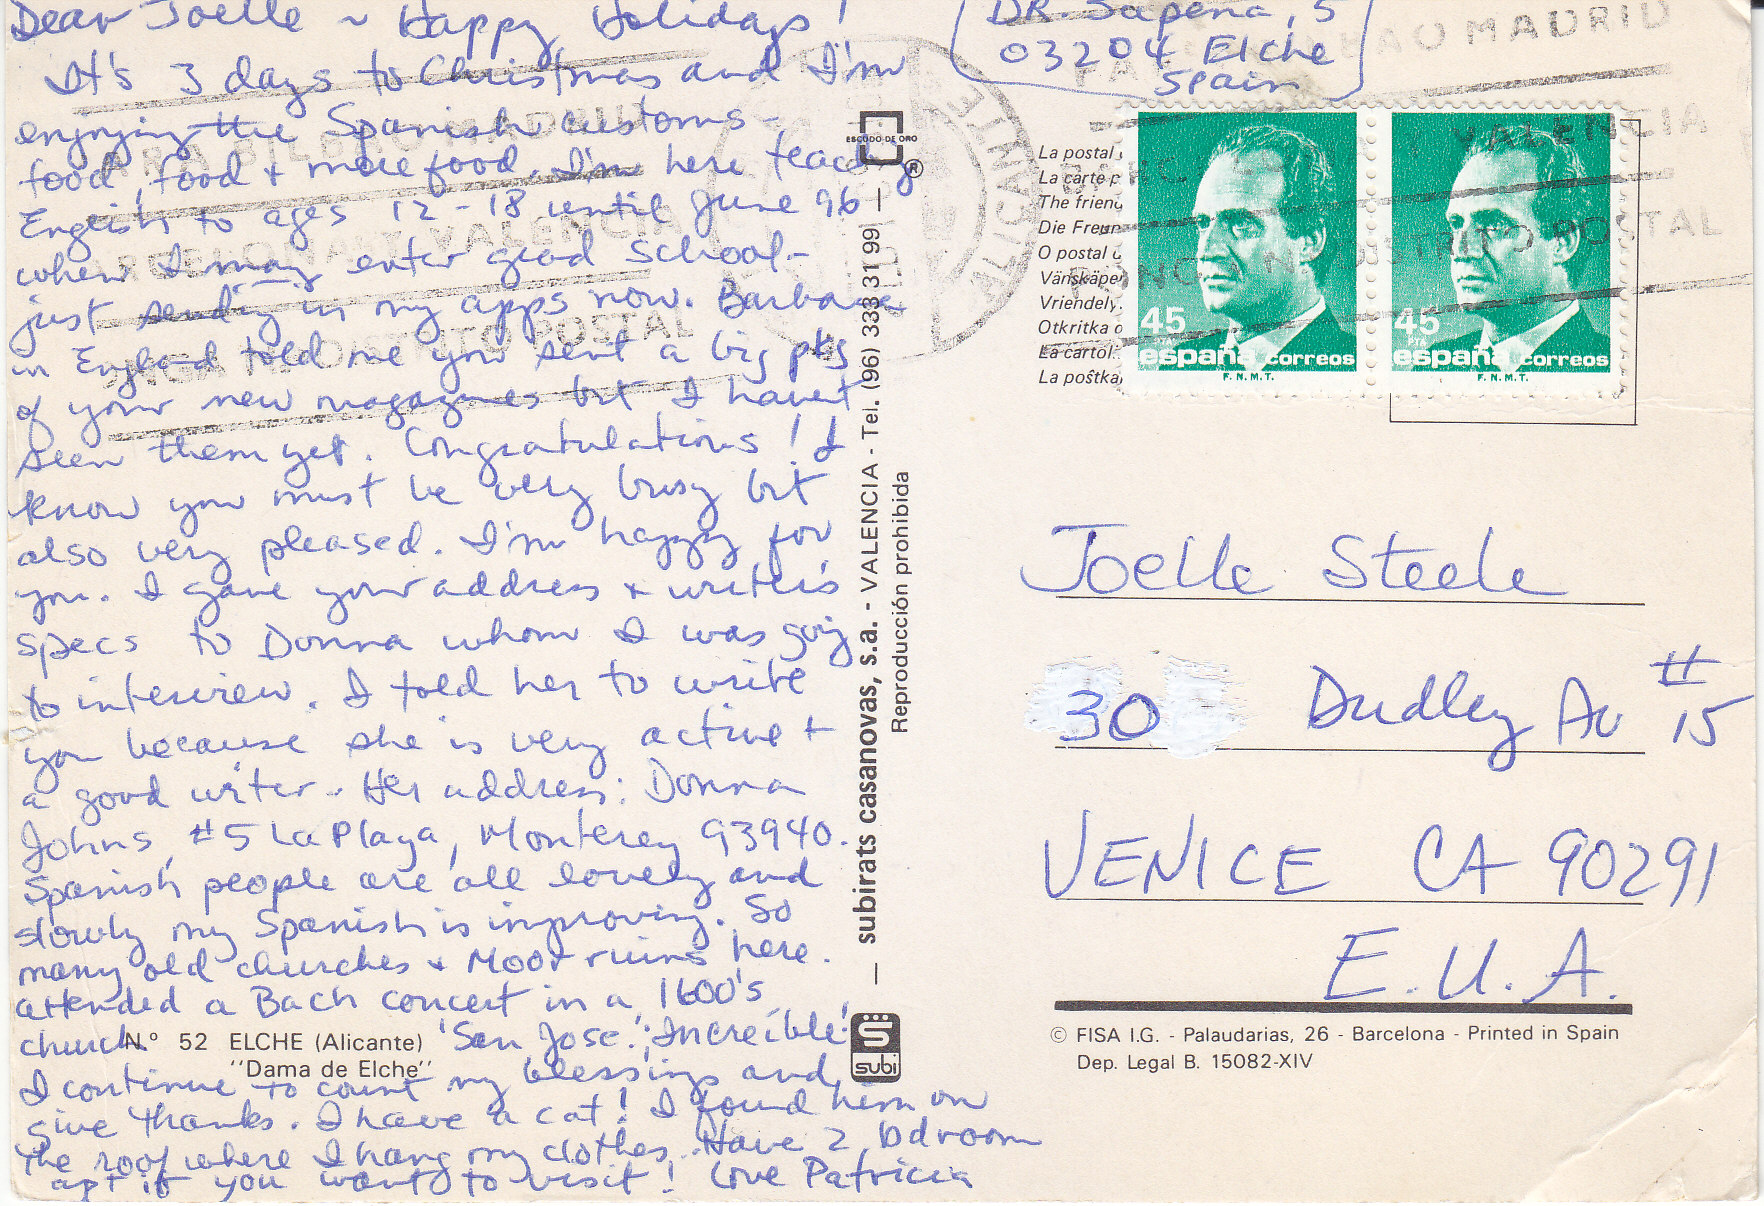 Dear Joelle ~ Happy Holidays!
It's 3 days to Christmas and I'm
enjoying the Spanish customs -
food, food + more food. I'm here teaching
English to ages 12-18 until June 96
when I may enter grad school -
just sending in my apps now. Barbara
in England told me you sent a big pkg
of your new magazines but I haven't
seen them yet. Congratulations! I
know you must be very busy but
also very pleased. I'm happy for
you. I gave your address + writer's
specs to Donna whom I was going
to interview. I told her to write
you because she is very active +
a good writer. Her address: Donna
Johns, #5 La Playa, Monterey 93940.
Spanish people are all lovely and
slowly my Spanish is improving. So
many old churches + Moor ruins here.
attended a Bach concert in a 1600's
church 'San Jose'. ¡Increíble!
I continue to count my blessings and
give thanks. I have a cat! I found him on
the roof where I hang my clothes. Have 2 bdroom
apt if you want to visit! Love Patricia
N.º 52 ELCHE (Alicante)
"Dama de Elche"
DR. Sapena, 5
03204 Elche
Spain
ESCUDO DE ORO
®
— subirats casanovas, s.a. - VALENCIA - Tel. (96) 333 31 99 —
Reproducción prohibida
S
subi
La postal
La carte p
The friend
Die Freun
O postal
Vänskäpe
Vriendely
Otkritka
La cartol
La poštka
45
PTA
españa correos
F.N.M.T.
45
PTA
españa correos
F.N.M.T.
BILBAO MADRID
VALENCIA
PONGA N DISTRITO POSTAL
PARA BILBAO MADRID
BARCELONA Y VALENCIA
PONGA Nº DISTRITO POSTAL
ALICANTE
Joelle Steele
30 Dudley Av #15
VENICE CA 90291
E.U.A.
© FISA I.G. - Palaudarias, 26 - Barcelona - Printed in Spain
Dep. Legal B. 15082-XIV